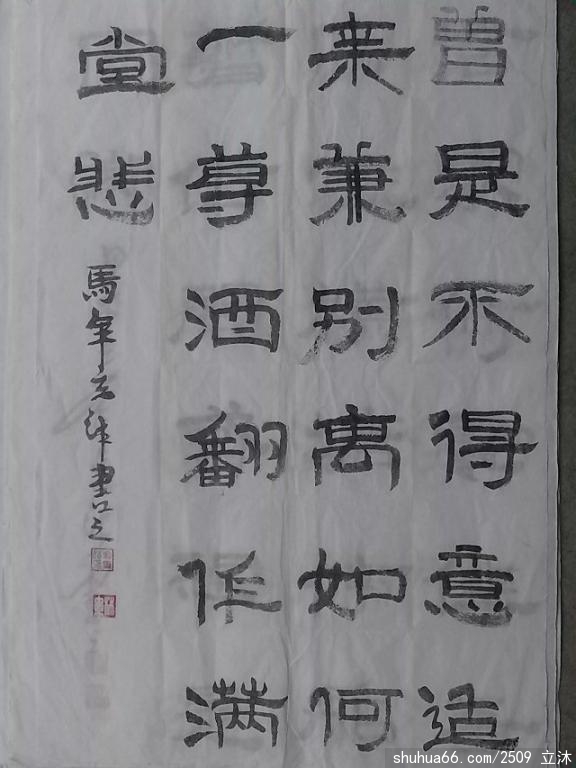 曾是不得意适
来兼别离如何
一尊酒翻作满
堂悲
馬年立沐書之
shuhua66.com/2509 立沐